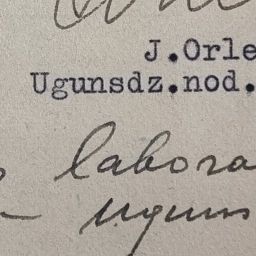 J.Orle
Ugunsdz.nod.
labora
uguns